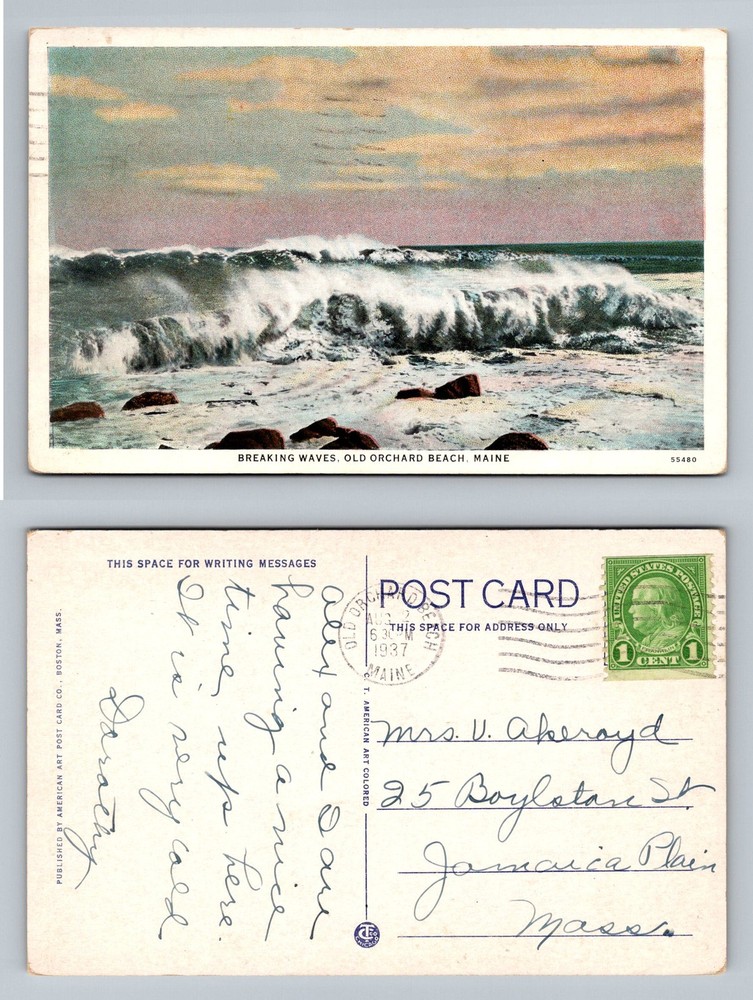 BREAKING WAVES, OLD ORCHARD BEACH, MAINE
55480
THIS SPACE FOR WRITING MESSAGES
Alex and I are
having a nice
time, up here.
It is very cold
Dorothy
PUBLISHED BY AMERICAN ART POST CARD CO., BOSTON, MASS.
POST CARD
THIS SPACE FOR ADDRESS ONLY
OLD ORCHARD BEACH
AUG 2
6 30 PM
1937
MAINE
UNITED STATES POSTAGE
1 CENT 1
C. T. AMERICAN ART COLORED
Mrs. V. Akeroyd
25 Boylston St.
Jamaica Plain
Mass.